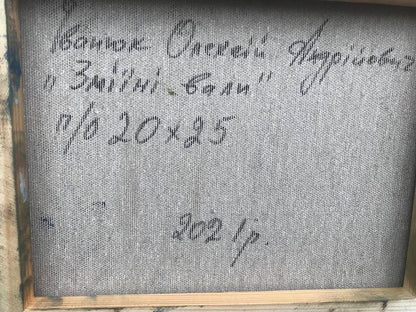 Іванюк Олексій Андрійович
"Зміїні вали"
п/о 20х25
2021р.